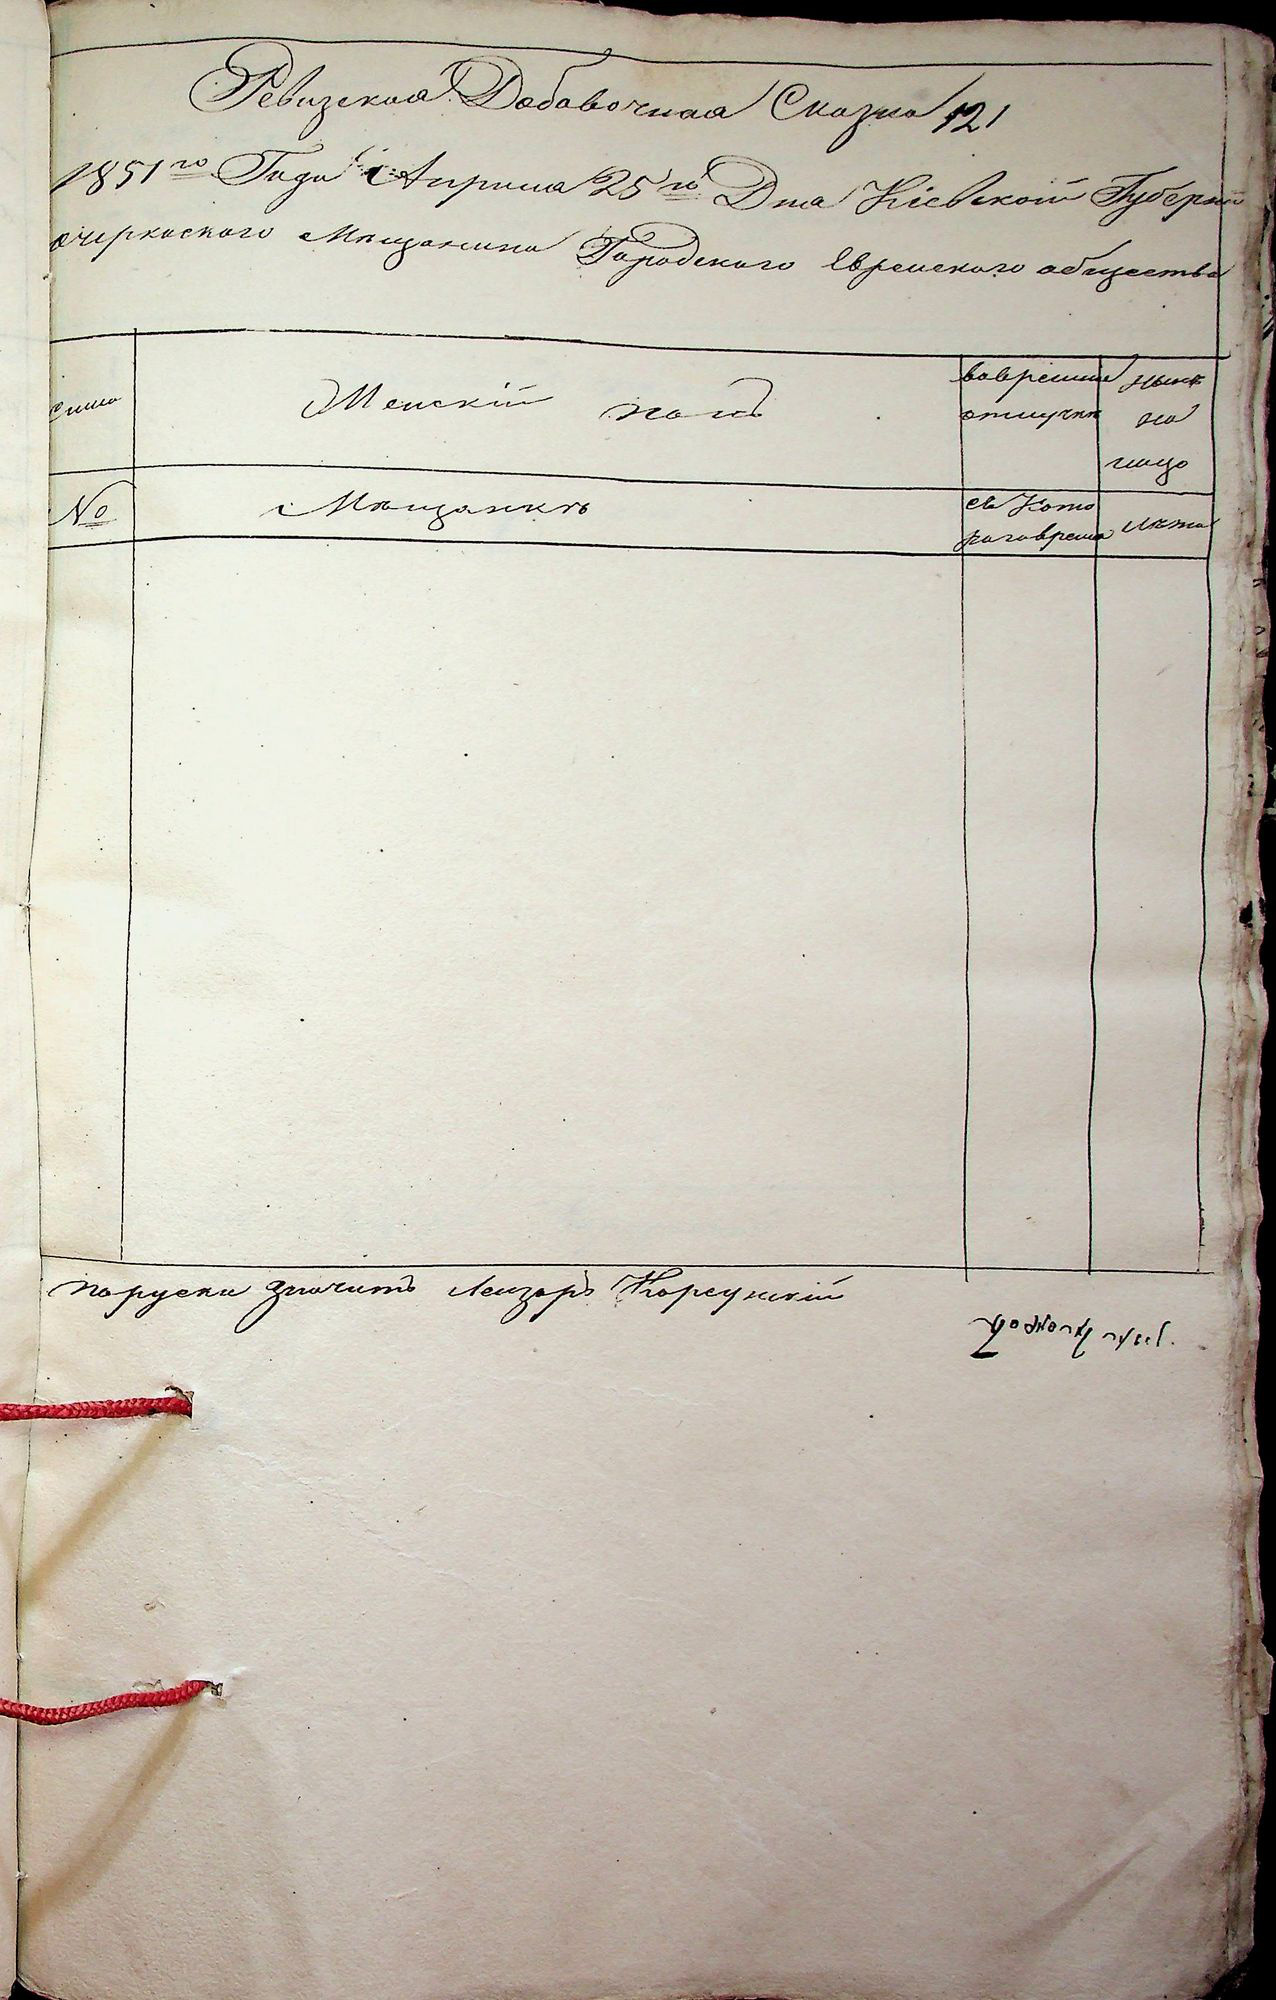 Ревизская Добавочная Сказка 121
1851го Года Априля 25го Дня Кіевской Губерніи
очеркаского Мещанина Городского Евреиского общества
Женскій полъ
вовремин
отлучки
нынѣ
на
лицо
№
Мещанкѣ
съ Кото
раговремя
лѣта
поруски значитъ Леизоръ Корсунскій